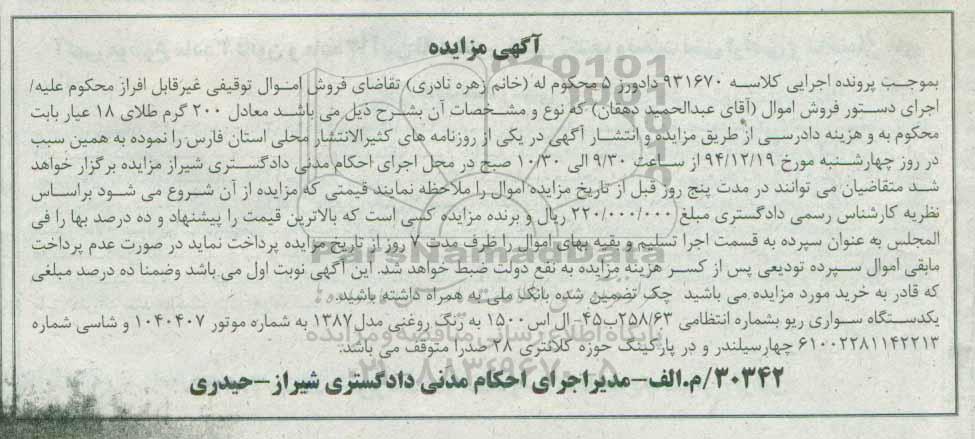 آگهی مزایده
بموجب پرونده اجرایی کلاسه ۹۳۱۶۷۰ دادورز ۵ محکوم له (خانم زهره نادری) تقاضای فروش اموال توقیفی غیرقابل افراز محکوم علیه/
اجرای دستور فروش اموال (آقای عبدالحمید دهقان) که نوع و مشخصات آن بشرح ذیل می باشد معادل ۲۰۰ گرم طلای ۱۸ عیار بابت
محکوم به و هزینه دادرسی از طریق مزایده و انتشار آگهی در یکی از روزنامه های کثیرالانتشار محلی استان فارس را نموده به همین سبب
در روز چهارشنبه مورخ ۹۴/۱۲/۱۹ از ساعت ۹/۳۰ الی ۱۰/۳۰ صبح در محل اجرای احکام مدنی دادگستری شیراز مزایده برگزار خواهد
شد متقاضیان می توانند در مدت پنج روز قبل از تاریخ مزایده اموال را ملاحظه نمایند قیمتی که مزایده از آن شروع می شود براساس
نظریه کارشناس رسمی دادگستری مبلغ ۲۲۰/۰۰۰/۰۰۰ ریال و برنده مزایده کسی است که بالاترین قیمت را پیشنهاد و ده درصد بها را فی
المجلس به عنوان سپرده به قسمت اجرا تسلیم و بقیه بهای اموال را ظرف مدت ۷ روز از تاریخ مزایده پرداخت نماید در صورت عدم پرداخت
مابقی اموال سپرده تودیعی پس از کسر هزینه مزایده به نفع دولت ضبط خواهد شد. این آگهی نوبت اول می باشد وضمنا ده درصد مبلغی
که قادر به خرید مورد مزایده می باشید چک تضمین شده بانک ملی به همراه داشته باشید.
یکدستگاه سواری ریو بشماره انتظامی ۲۵۸/۶۳ب۴۵- ال اس ۱۵۰۰ به رنگ روغنی مدل ۱۳۸۷ به شماره موتور ۱۰۴۰۴۰۷ و شاسی شماره
۶۱۰۰۲۲۸۱۱۴۲۲۱۳ چهارسیلندر و در پارکینگ حوزه کلانتری ۲۸ صدرا متوقف می باشد.
۳۰۳۴۲/م.الف-مدیراجرای احکام مدنی دادگستری شیراز-حیدری
ParsNamadData
پایگاه اطلاع رسانی مناقصه و مزایده